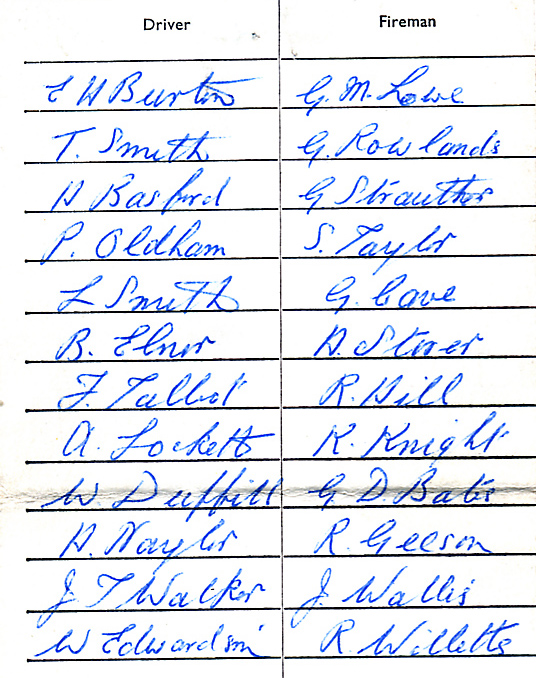 Driver Fireman
E H Burton G. M. Lowe
T. Smith G. Rowlands
H Basford G Strauther
P. Oldham S. Taylor
L Smith G. Cave
B. Elnor H. Storer
F. Talbot R. Hill
A. Lockett K. Knight
W Duffill G D Bates
H. Naylor R. Geeson
J T Walker J. Wallis
W Edwardson R. Willetts